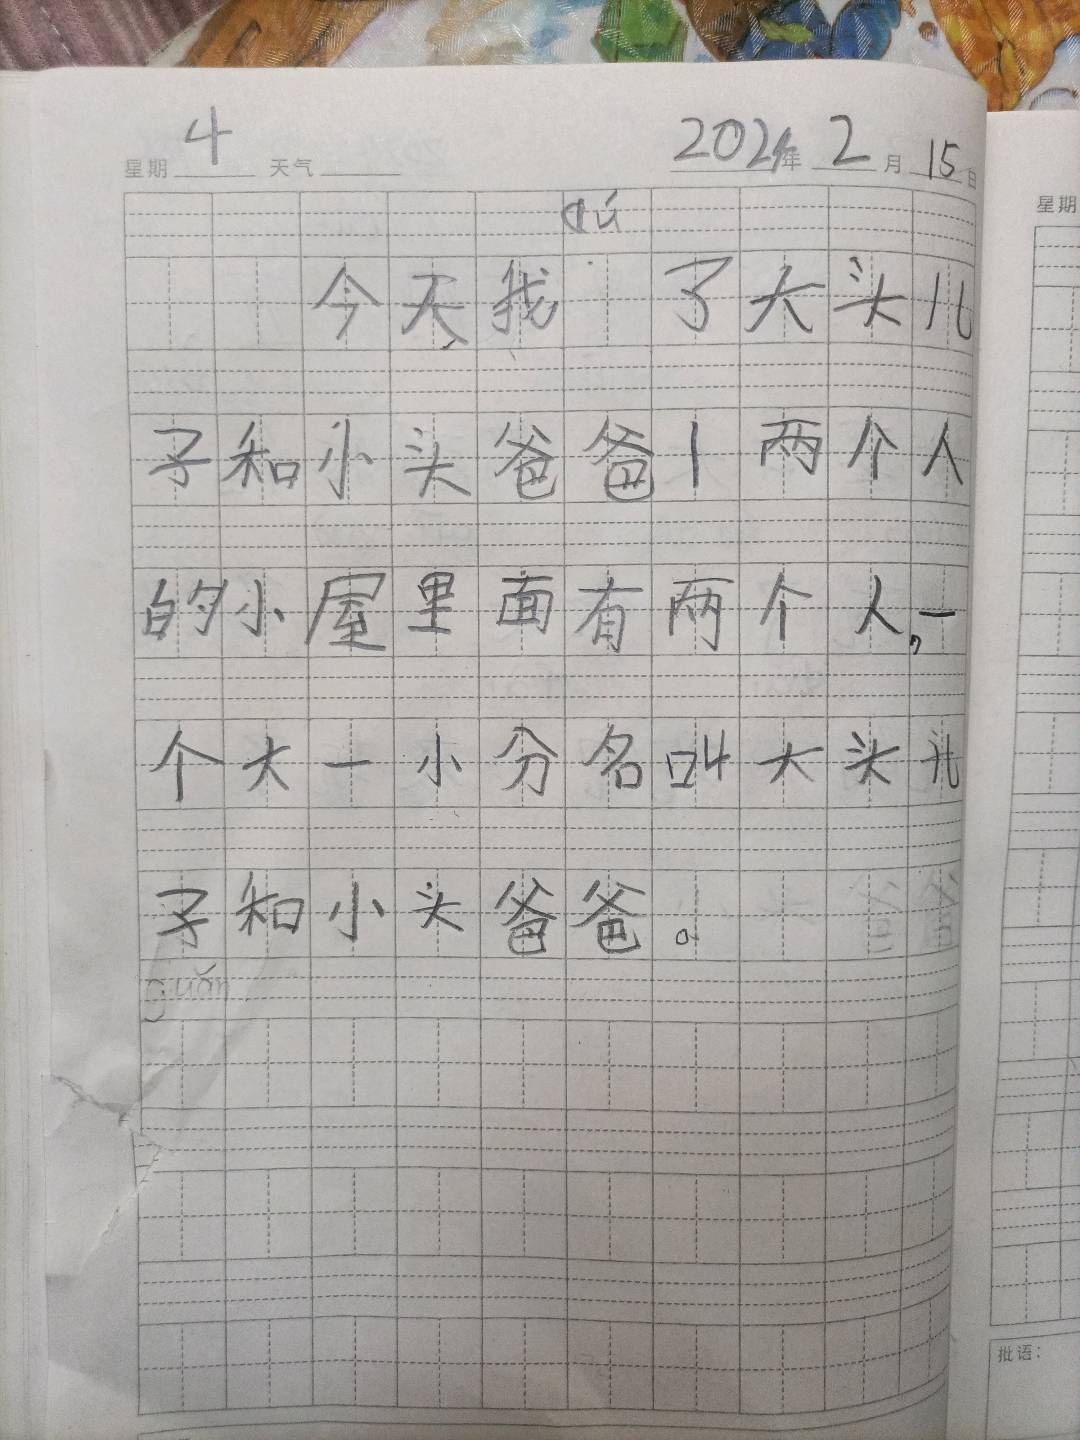 星期 4 天气 2024年 2 月 15 日
dú
今天我 了大头儿
子和小头爸爸丨两个人
的小屋里面有两个人,一
个大一小分名叫大头儿
子和小头爸爸。
guǎn
星期
批语: